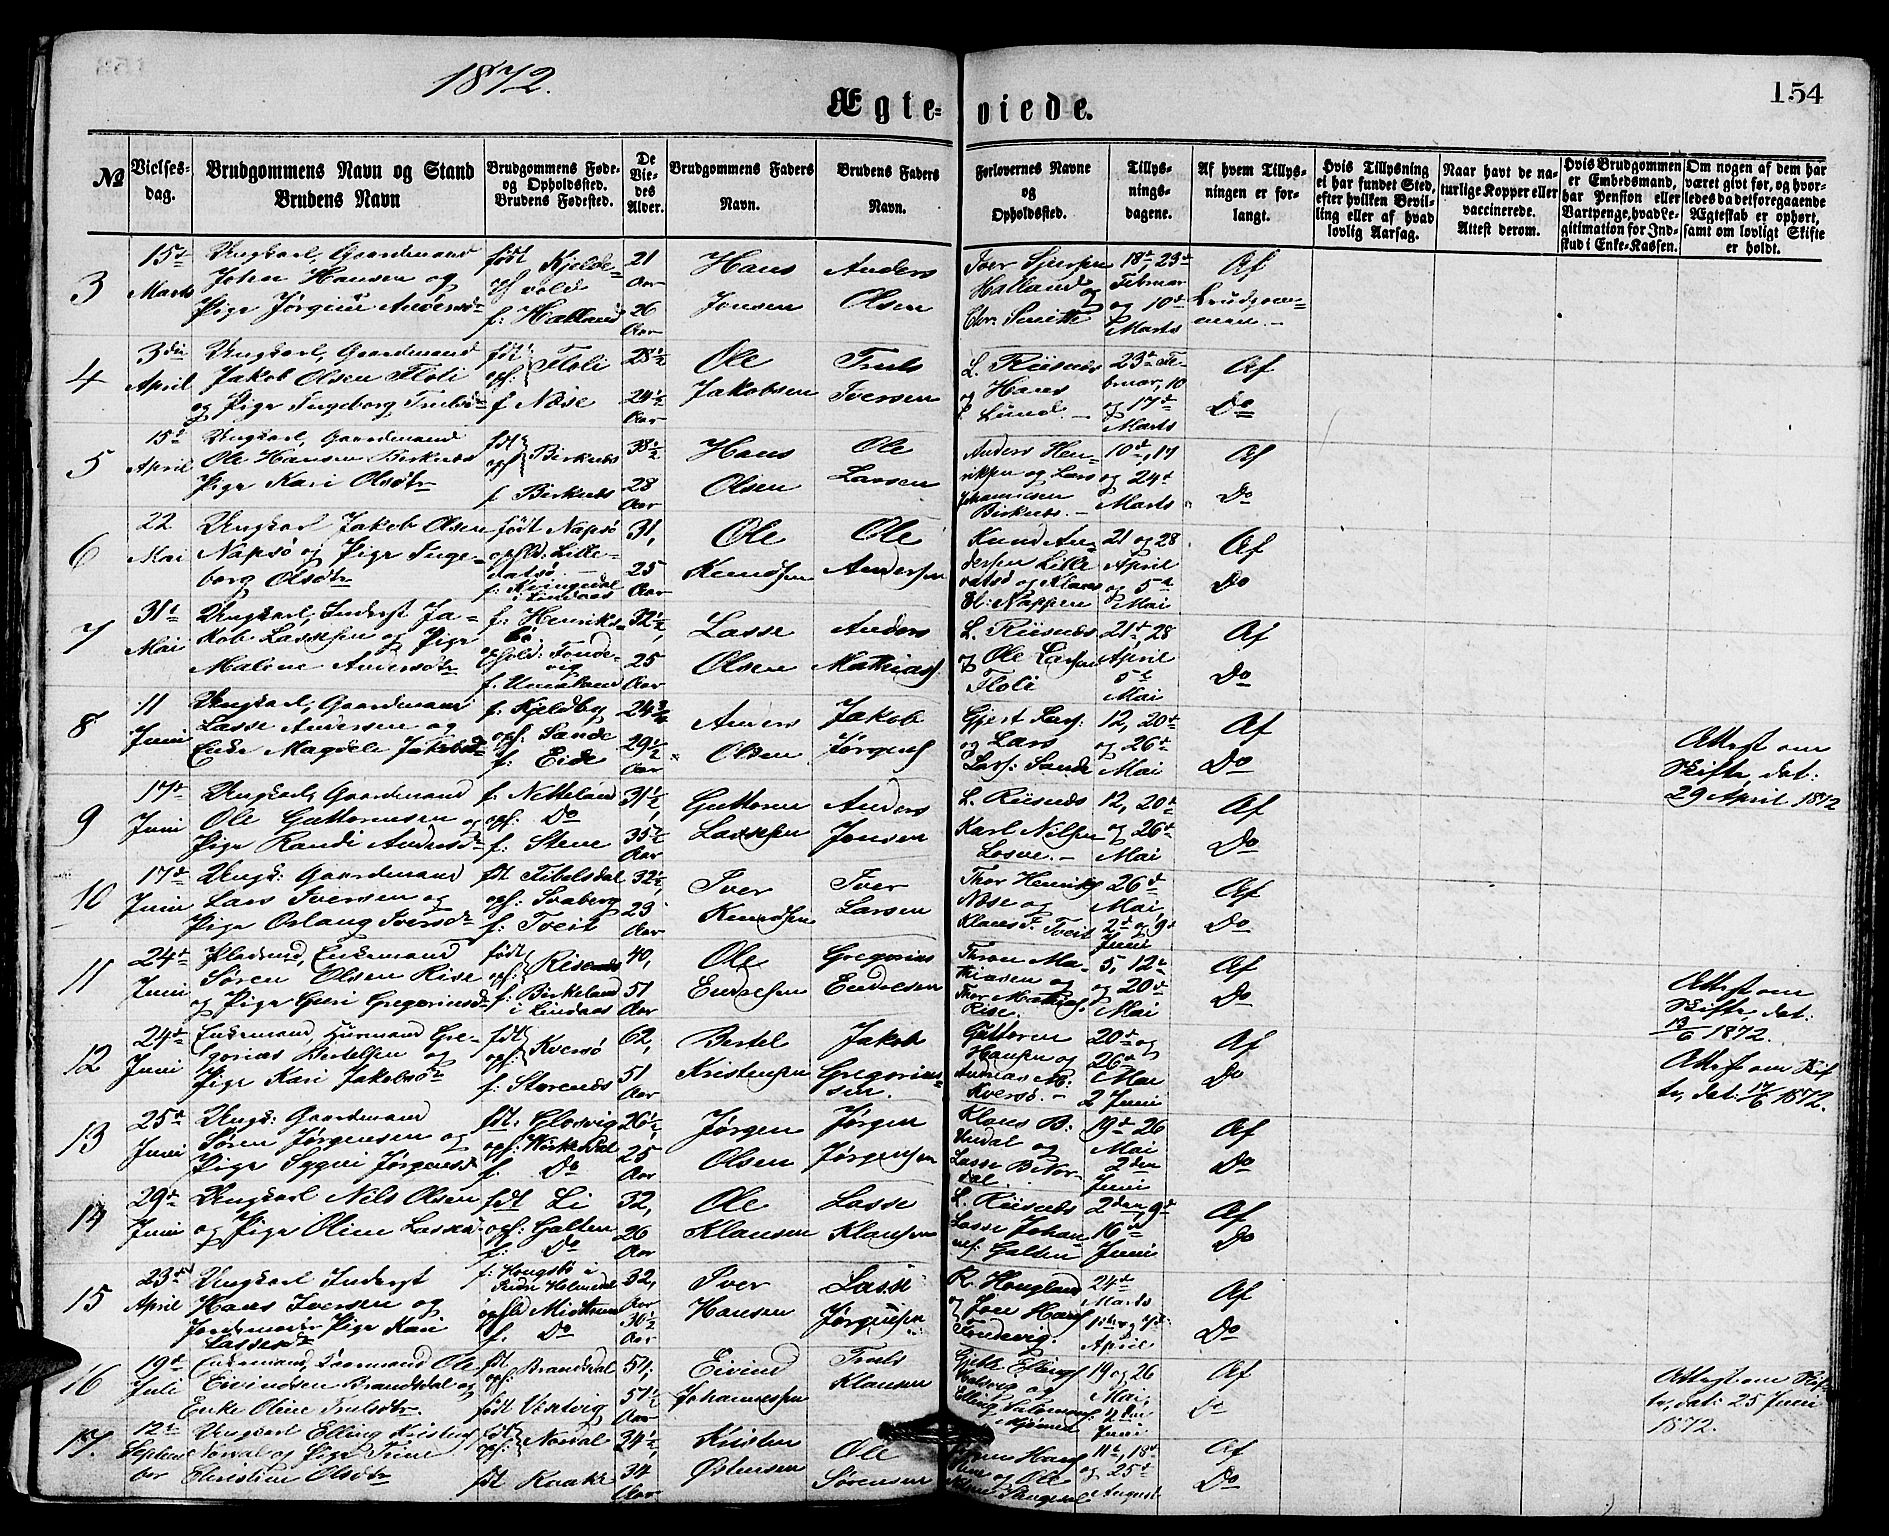 1872.
154
Ægte- viede.
№
Vielses-dag.
Brudgommens Navn og Stand
Brudens Navn
Brudgommens Føde- og Opholdssted.
Brudens Fødested.
De Vie-des Alder.
Brudgommens Faders Navn.
Brudens Faders Navn.
Forlovernes Navne og Opholdssted.
Tillys-nings-dagene.
Af hvem Tillys-ningen er for-langt.
Hvis Tillysning ei har fundet Sted, efter hvilken Bevil-ling eller af hvad lovlig Aarsag.
Naar havt de na-turlige Kopper eller vaccinerede. Attest derom.
Hvis Brudgommen er Embedsmand, har Pension eller Vartpenge, hvad Le-gitimation for Ind-skud i Enke-Kassen.
Om nogen af dem har været gift før, og hvor-ledes da det foregaaende Ægteskab er ophørt, samt om lovligt Skifte er holdt.
3 15de Marts
Ungkarl, Gaardmand
John Hansen og
Pige Jørgine Andersdr
født
f: Halland
21 Aar
26 Aar
Hans Jonsen
Anders Olsen
Halland og
18de, 23de Februar og 10de Marts
Af Brudgommen.-
4 3die April
Ungkarl, Gaardmand
Jakob Olsen Floli
og Pige Ingeborg Trulsdr
fdt oph: Floli
f Næse
28½
24½ Aar
Ole Jakobsen
Truls Iversen
L. Riisnæs og Hans
Lund.-
23de Februar, 10 og 17de Marts
Af Do
5 15de April
Ungkarl, Gaardmand
Ole Hansen Birknæs
Pige Kari Olsdtr
fdt oph: Birknæs
f Birknæs
38½
28 Aar
Hans Olsen
Ole Larsen
Anders Hen-riksen og Lars
Johannesen Birknæs.-
10de, 17 og 24de Marts
Af Do
6 22 Mai
Ungkarl Jakob Olsen
Napsø og Pige Inge-
borg Olsdtr
født Napsø
i Lindaas
31,
25 Aar
Ole Knudsen
Ole Andersen
Knud An-dersen Lille
21 og 28 April og 5te Mai
Af Do
7 31te Mai
Ungkarl, Inderst Ja-
kob Lassesen og Pige
Malene Andersdtr
f: Henriks-bø
32½,
25 Aar
Lasse Olsen
Anders Mathias.
L. Riisnæs og Ole Larsen
Floli
21de, 28 April 5te Mai
Af Do
8 11 Juni
Ungkarl, Gaardmand
Lasse Andersen og
Enke Magdele Jakobsd
f: Kjeldby
oph: Sande
f: Eide
24¾
29½ Aar
Anders Olsen
Jakob Jørgens
Gjert Lars: og Lars
Lars: Sande
12, 20de og 26de Mai
Af Do
Attest om
Skifte, dat:
29 April 1872
9 17de Juni
Ungkarl, Gaardmand
Ole Guttormsen og
Pige Randi Andersd
f: Netteland
oph: Do
f: Stene
31½,
35½ Aar
Guttorm Lassesen
Anders Jonsen
L. Riisnæs
Karl Nilsen
12, 20de og 26de Mai
Af Do
10 17de Juni
Ungk: Gaardmand
Lars Iversen og
Pige Oslaug Iversdr
oph: Svaberg
f: Tveit
32½,
29 Aar
Iver Knudsen
Iver Larsen
Thor Henriks
Næse og
Klaus F. Tveit
26de Mai 2de og 9de Juni
Af Do
11 24de Juni
Enkemand
Søren Olsen Rise
og Pige Guri Gregoriusd
født oph:
f: Birkeland i Lindaas
40,
51 Aar
Ole Endresen
Gregorius Endresen
Thron Ma-thiasen og
Rise.
5, 12te og 20de Mai
Af Do
Attest om
Skifte, dat:
1872.
12 24de Juni
Enkemand, Huusmand Gre-
gorius Bertelsen og
Pige Kari Jakobsdr
fdt oph: Kversø
f: Storenæs
62,
51 Aar
Bertel Kristensen
Jakob Gregorius-sen.
Guttorm Hansen og
Kversø.-
20de og 26de Mai 2 Juni
Af Do
Attest om Skif-
te, dat: 17/6 1872.
13 25de Juni
Ungk: Gaardmand
Søren Jørgensen og
Pige Sygni Jørgensd
fdt. Glosvig
f. Do
26½,
25 Aar
Jørgen Olsen
Jørgen Jørgensen
Klaus B. Undal og
Lasse B. Nor-dal.
19de 26 Mai 2den Juni
Af Do
14 29de Juni
Ungkarl Nils Olsen
og Pige Oline Lassed.
fdt Li
oph: Galten
f: Do
32,
26 Aar
Ole Klausen
Lasse Klausen
L. Riisnæs
Lasse Johan-nes. Galten
2den, 9de 16de Juni
Af Do
15 23de April
Ungkarl Inderst
Hans Iversen og
Jordemoder Pige Kari
Lassesdr
f. Do
32, Aar
30½ Aar
Iver Hansen
Lasse Jørgensen
R. Hougland
24de Marts
April
Af Do
16 19de Juli
Enkemand, Gaardmand Ole
Eivindsen Brandsdal og
Enke Oline Trulsdtr.
fdt oph: Brandsdal
54,
51½ Aar
Eivind Johannessen
Truls Klausen
19 og 26 Mai, 2den Juni
Af Do
Attest om Skif-
te, dat: 25 Juni
1872.
17. 12te Septem-ber
Ungkarl Elling Kristens
Nordal og Pige Trine
Christine Olsdtr
fdt oph: Nordal
fdt Kaake
24½,
34 Aar
Kristen Østensen
Ole Sørensen
11te, 18de og 25de August
Af Do